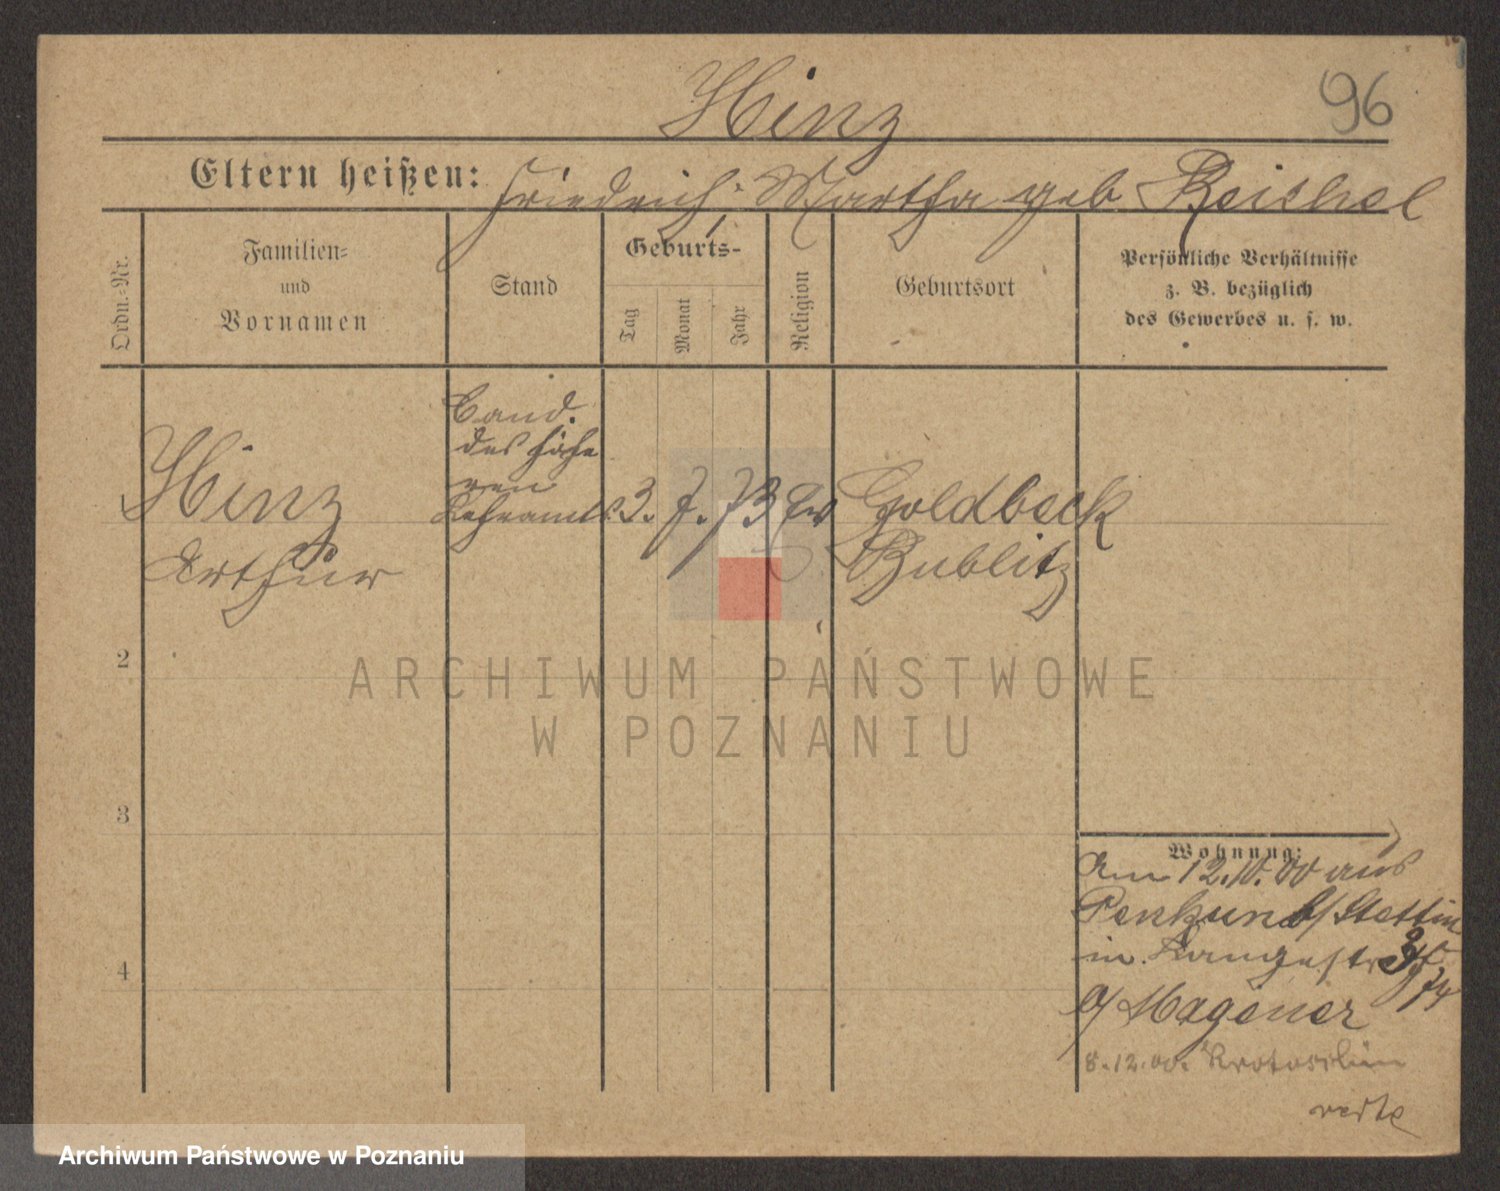 96
Hinz
Eltern heißen: Friedrich, Martha geb Reichel
Ordn.-Nr.
Familien-
und
Vornamen
Stand
Geburts-
Tag
Monat
Jahr
Religion
Geburtsort
Persönliche Verhältnisse
z. B. bezüglich
des Gewerbes u. s. w.
Cand.
des höhe
ren
Lehramts
Hinz
Arthur
3. 7. 73 Ev
Goldbeck
Bublitz
2
3
4
Wohnung:
Am 12.10.00 aus
Penkun b/Stettin
in Langestr
b/ Wagener
8.12.00. Krotoschin
verte
ARCHIWUM PAŃSTWOWE
W POZNANIU
Archiwum Państwowe w Poznaniu